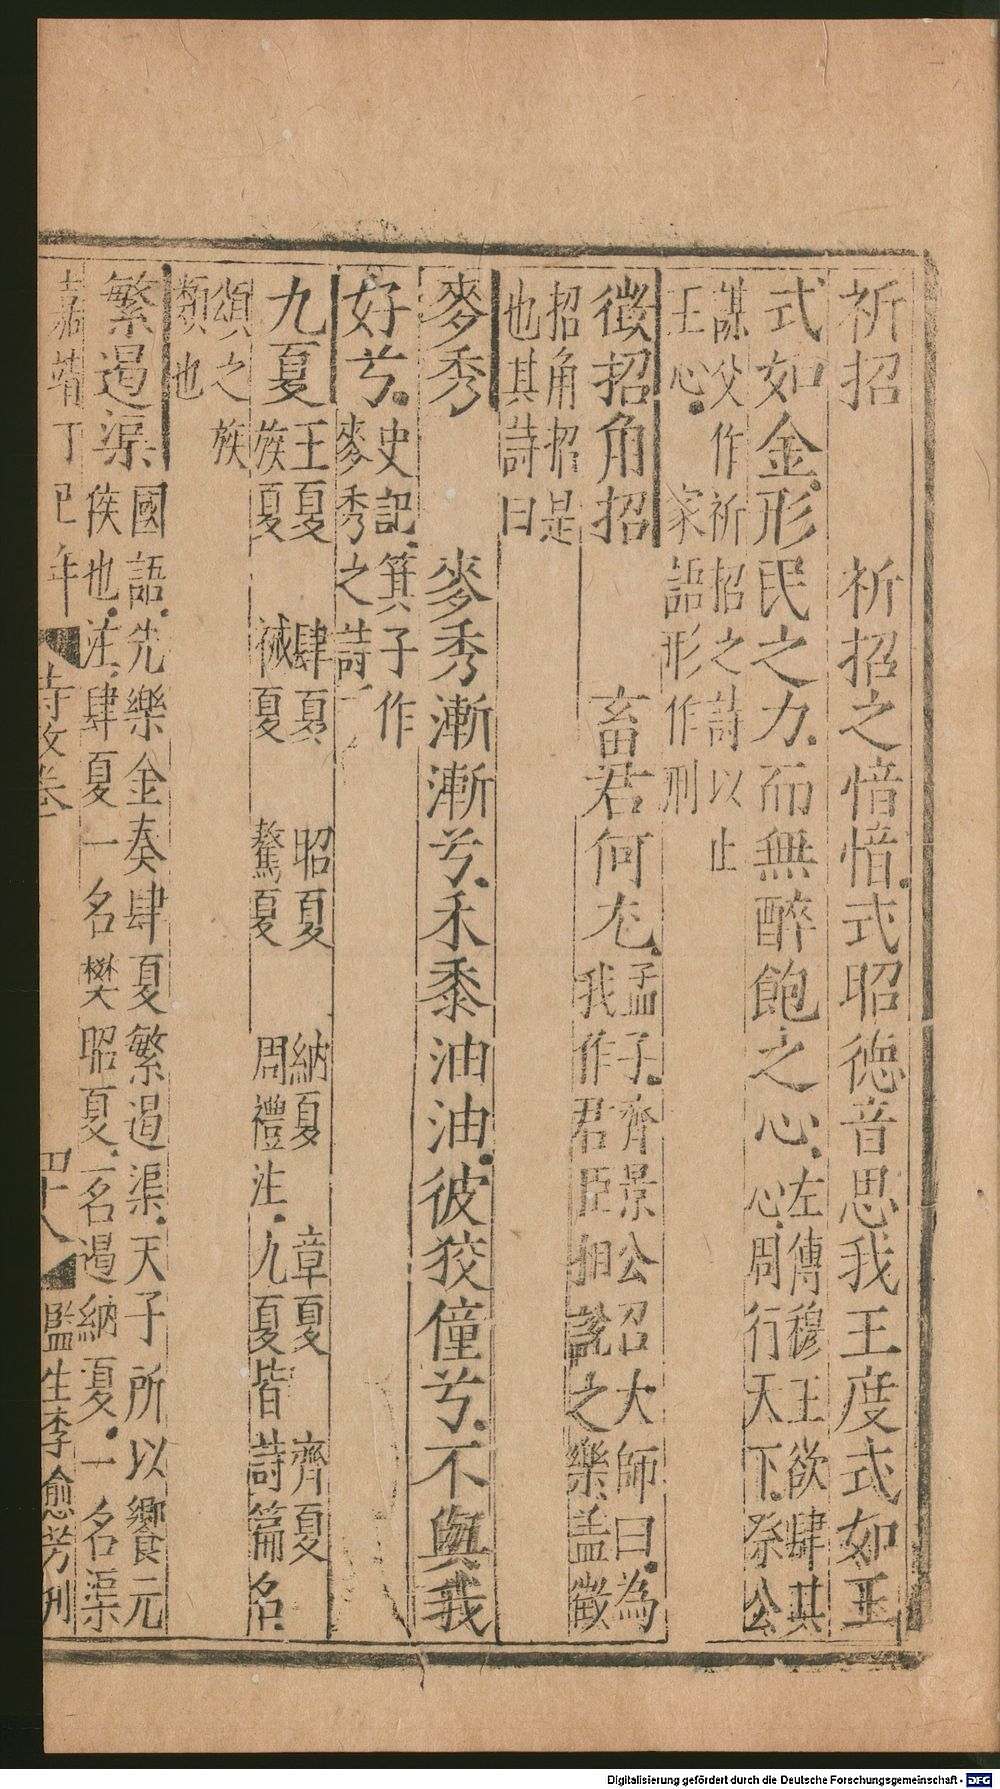 祈招　祈招之愔愔式昭德音思我王度式如玉
式如金形民之力而無醉飽之心左傳穆王欲肆其
心周行天下祭公
謀父作祈招之詩以止
王心　家語形作刑
徵招角招　畜君何尤孟子齊景公召大師曰為
我作君臣相說之樂盖徵
招角招是
也其詩曰
麥秀　麥秀漸漸兮禾黍油油彼狡僮兮不與我
好兮史記箕子作
麥秀之詩
九夏王夏　肆夏　昭夏　納夏　章夏　齊夏
族夏　祴夏　驁夏　周禮注九夏皆詩篇名
頌之族
類也
繁遏渠國語先樂金奏肆夏繁遏渠天子所以饗元
侯也注肆夏一名樊昭夏一名遏納夏一名渠
嘉靖丁巳年　詩攷卷　四十八　監生李愈芳刊
Digitalisierung gefördert durch die Deutsche Forschungsgemeinschaft - DFG